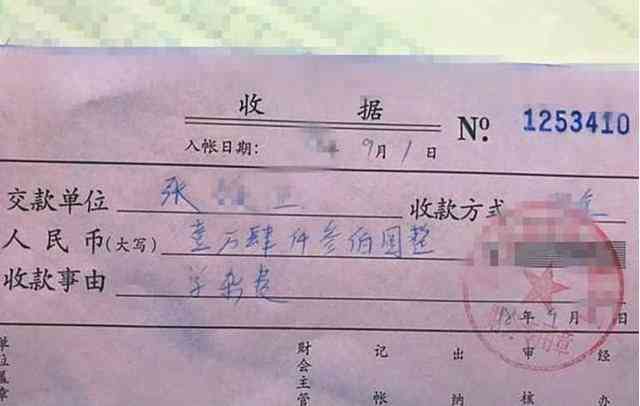 收 据
№ 1253410
入帐日期: 9月1日
交款单位 张 收款方式
人民币(大写) 壹万肆仟叁佰圆整
收款事由 学杂费
年 月 日
单位盖章 财会主管 记帐 出纳 审核 经办